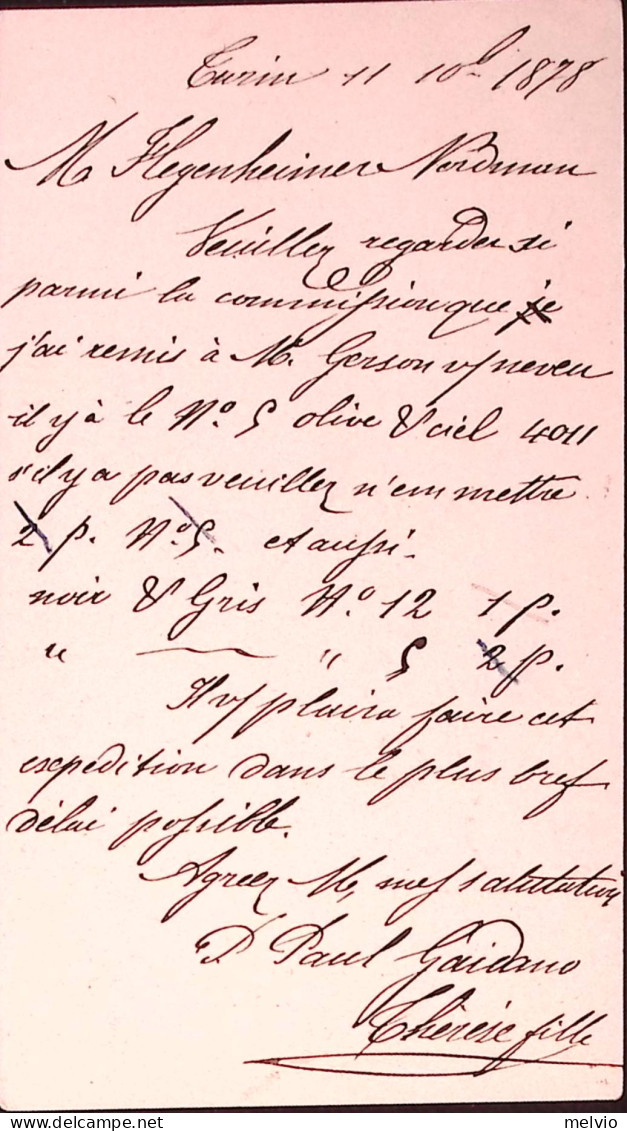 Turin 11 10b 1878
M Flegenheimer Nordman
Veuillez regarder si
parmi la commission que je
j'ai remis à M. Gerson v/ neveu
il y à le No. 5 olive & ciel 4011
s'il y a pas veuillez n'em mettre
2 p. No 5. et aussi
noir & Gris No. 12 1 p.
" — " 5 2 p.
Il v/ plaira faire cet
expedition dans le plus bref
délai possible.
Agreez M, nos salutations
P. Paul Gaidano
Thérèse fille
delcampe.net
melvio